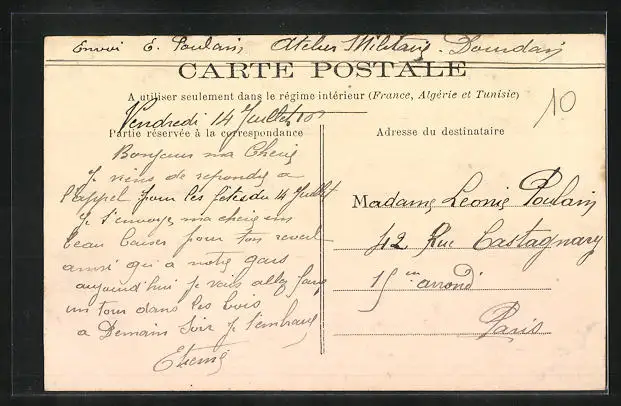 Envoi E. Poulain, Atelier Militaire. Dourdan
CARTE POSTALE
A utiliser seulement dans le régime intérieur (France, Algérie et Tunisie)
10
Vendredi 14 Juillet
Partie réservée à la correspondance
Bonjour ma Cherie
Je viens de repondre a
l'appel pour les fêtes du 14 Juillet
Je t'envoye ma cherie un
beau baiser pour ton reveil
ainsi qu'a notre gars
aujourd'hui je vais aller faire
un tour dans les bois
a Demain Soir Je t'embrasse
Etienne
Adresse du destinataire
Madame Leonie Poulain
42 Rue Castagnary
15 em arrondi
Paris